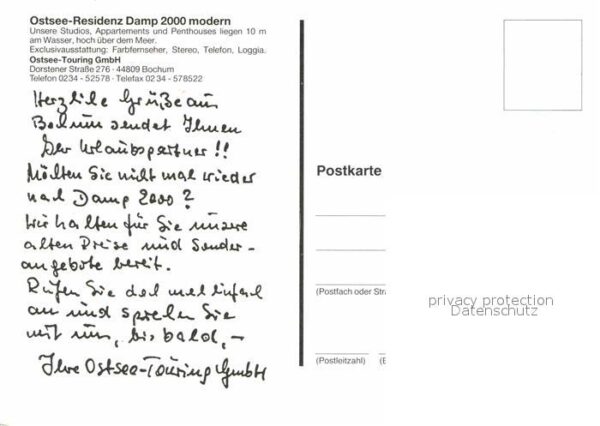 Ostsee-Residenz Damp 2000 modern
Unsere Studios, Appartements und Penthouses liegen 10 m
am Wasser, hoch über dem Meer.
Exclusivausstattung: Farbfernseher, Stereo, Telefon, Loggia.
Ostsee-Touring GmbH
Dorstener Straße 276 · 44809 Bochum
Telefon 0234 - 52578 · Telefax 0234 - 578522
Herzliche Grüße aus
Bochum sendet Ihnen
Ihr Urlaubspartner!!
Möchten Sie nicht mal wieder
nach Damp 2000?
Wir halten für Sie unsere
alten Preise und Sonder-
angebote bereit.
Rufen Sie doch mal einfach
an und sprechen Sie
mit uns, bis bald, –
Ihre Ostsee-Touring GmbH
Postkarte
(Postfach oder Stra
(Postleitzahl)
privacy protection
Datenschutz